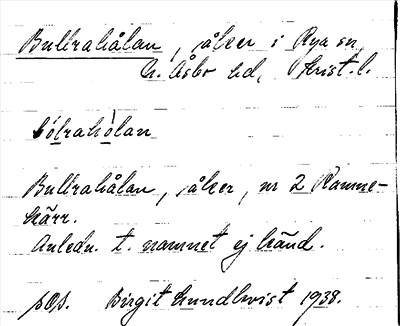 Bultrahålan, åker i Rya sn,
N. Åsbo hd, Krist. l.
bo̱lrahòlan
Bultrahålan, åker, nr 2 Ramne-
kärr.
Anledn. t. namnet ej känd.
pop. Birgit Lundkvist 1938.